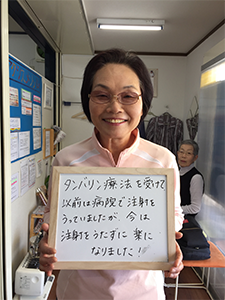 タンバリン療法を受けて
以前は病院で注射を
うっていましたが、今は
注射をうたずに楽に
なりました!